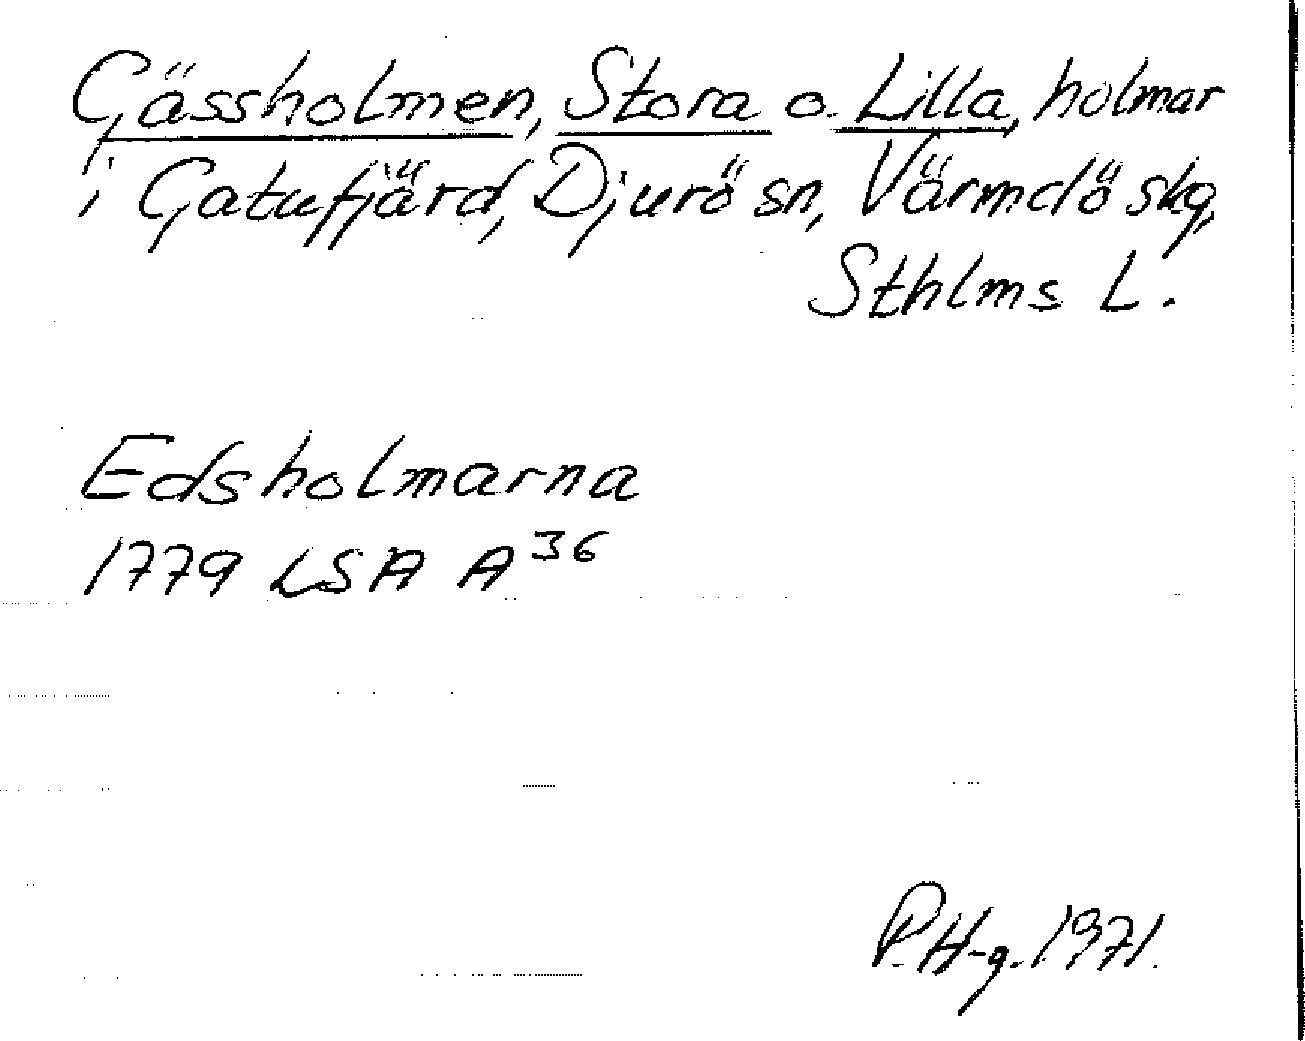 Gässholmen, Stora o. Lilla, holmar
i Gatufjärd, Djurö sn, Värmdö skg,
Sthlms L.
Edsholmarna
1779 LSA A³⁶
P.H-g. 1971.